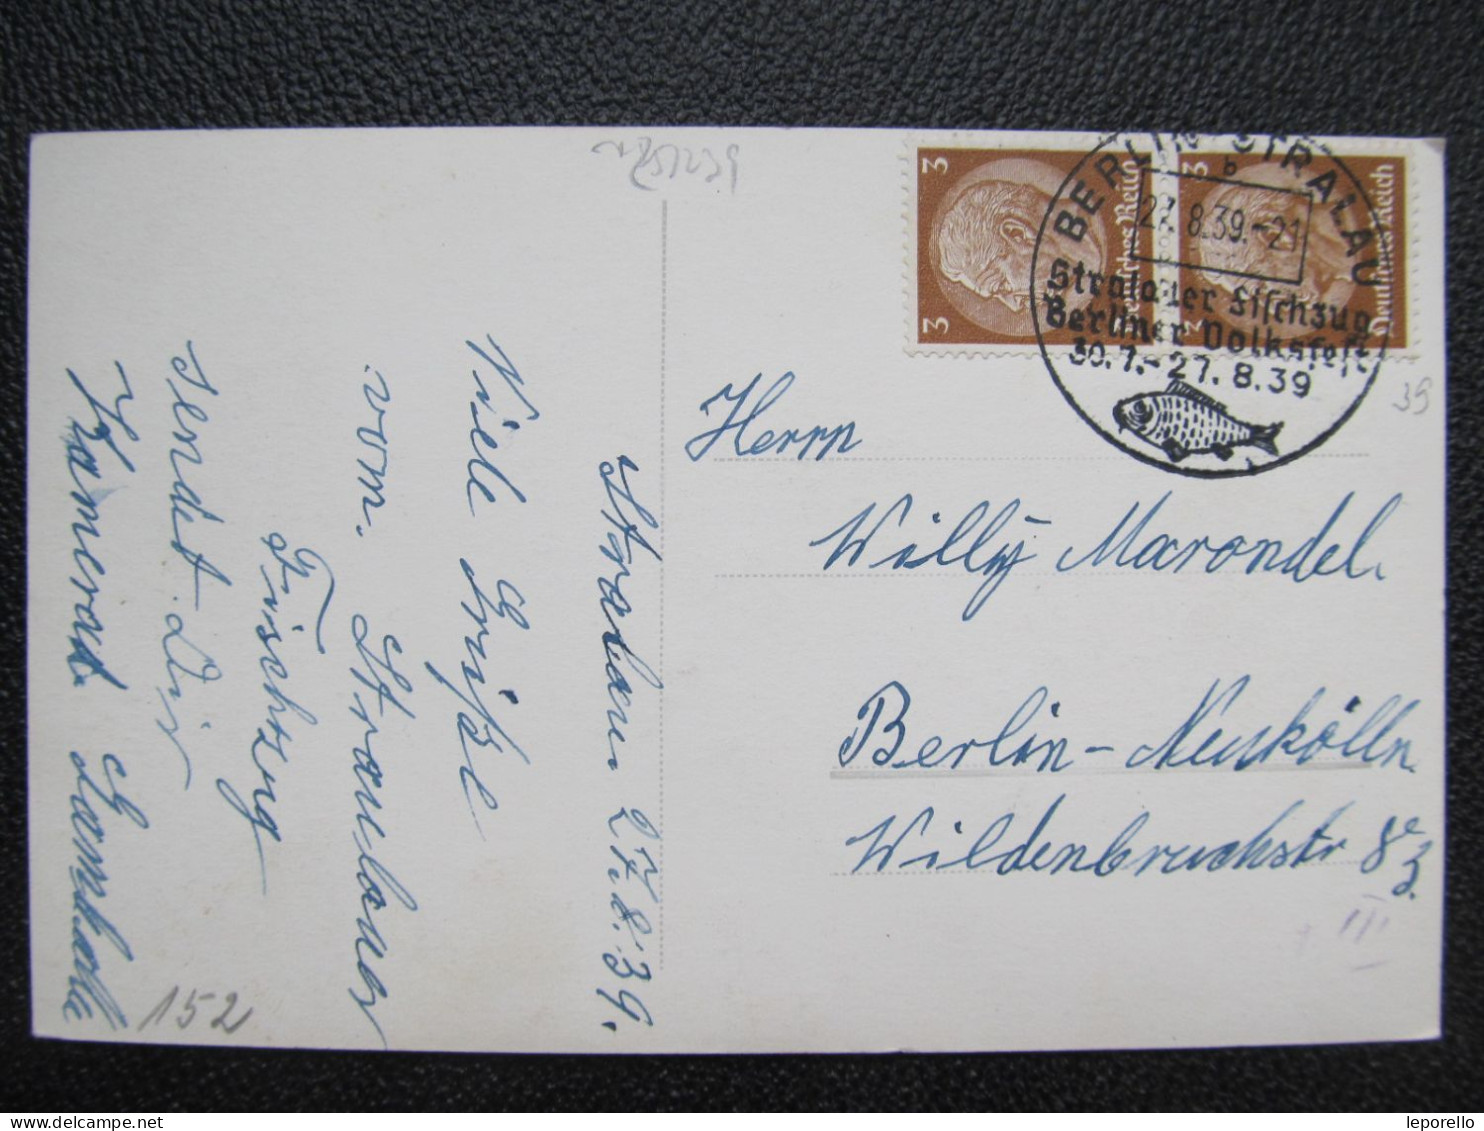 Stralau 27.8.39.
Viele Grüße
vom. Stralauer
Fischzug
sendet Dir
Kamerad
152
3
3
Deutsches Reich
3
3
Deutsches Reich
BERLIN-STRALAU
b
27.8.39.-21
Stralauer Fischzug
Berliner Volksfest
30.7.-27.8.39
39
Herrn
Willy Marondel.
Berlin-Neukölln.
Wildenbruchstr 83.
III
leporello